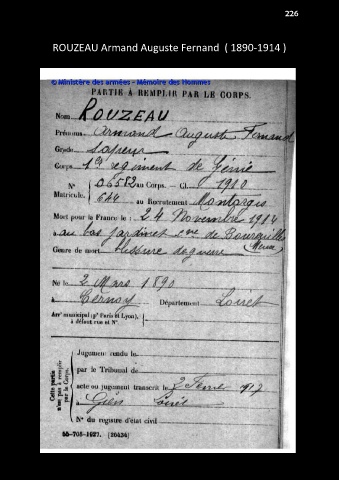 226
ROUZEAU Armand Auguste Fernand ( 1890-1914 )
© Ministère des armées - Mémoire des Hommes
PARTIE À REMPLIR PAR LE CORPS.
Nom ROUZEAU
Prénoms Armand Auguste Fernand
Grade Sapeur
Corps 1er régiment de Génie
N° 06582 au Corps. — Cl. 1910
Matricule. 644 au Recrutement Montargis
Mort pour la France le : 24 Novembre 1914
à au bas jardinet de
(Meuse)
Genre de mort blessure de guerre
Né le 2 Mars 1890
à Cernoy Département Loiret
Arrt municipal (pr Paris et Lyon),
à défaut rue et N°.
Cette partie
n'est pas à remplir
par le Corps.
Jugement rendu le
par le Tribunal de
acte ou jugement transcrit le 2 Février 1917
à Gien Loiret
N° du registre d'état civil
55-708-1927. [26434]